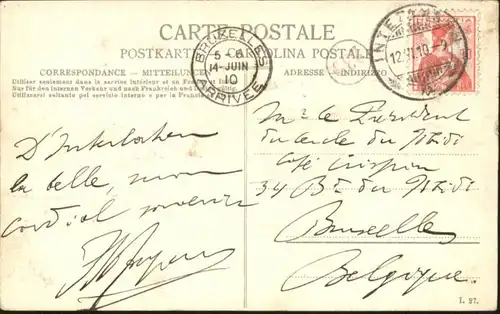 CARTE POSTALE
POSTKARTE — CARTOLINA POSTALE
CORRESPONDANCE — MITTEILUNGEN
ADRESSE — INDIRIZZO
Utilisez seulement dans le service intérieur et en France
Nur für den internen Verkehr und nach Frankreich
Utilizzarsi soltanto pel servizio interno e per la Francia
BRUXELLES
5-6
14-JUIN
10
ARRIVÉE
12.VI.10.-9
D'Interlaken
la belle, mon
cordial souvenir
Mr le Président
du cercle du Midi
Café
34 Bd du Midi
Bruxelles
Belgique.
I. 27.